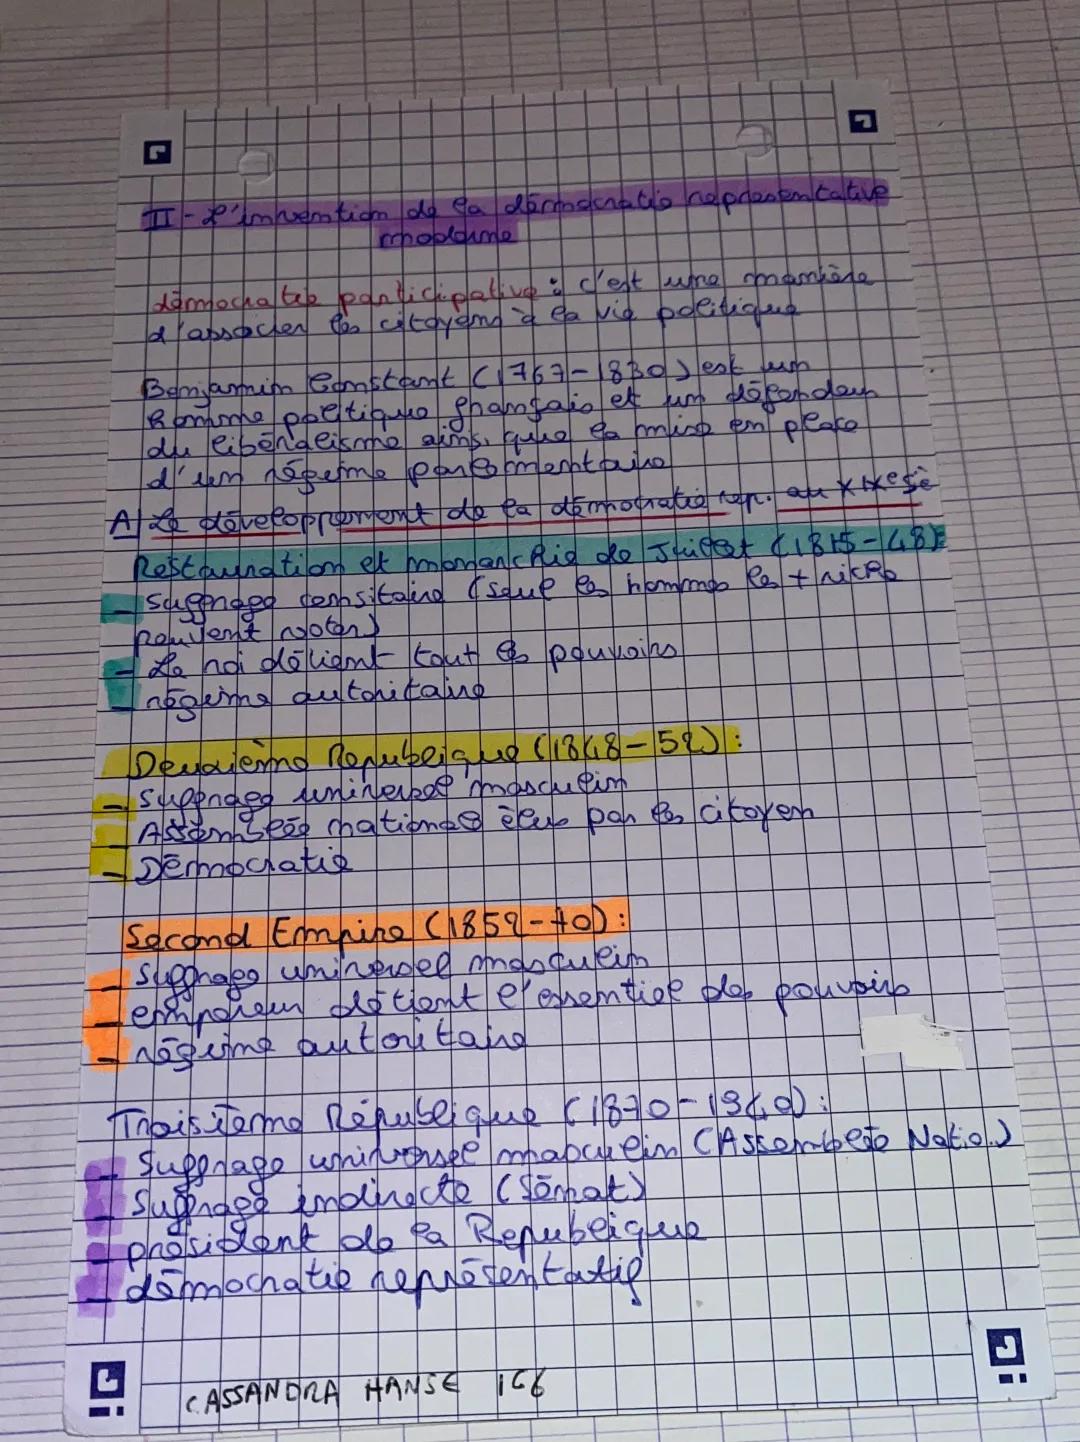 II - L'invention de la démocratie representative
moderne
démocratie participative : c'est une manière
d'associer les citoyens à la vie politique
Benjamin Constant (1767-1830) est un
homme politique français et un défendeur
du libéralisme ainsi que la mise en place
d'un régime parlementaire
A) Le développement de la démocratie rep. au XIXe siè
Restauration et monarchie de Juillet (1815-48):
- Suffrage censitaire (seul les hommes les + riche
peuvent voter)
- Le roi détient tout les pouvoirs
- régime autoritaire
Deuxième Republique (1848-52) :
- Suffrage universel masculin
- Assemblée nationale élus par les citoyen
- Démocratie
Second Empire (1852-70) :
- Suffrage universel masculin
- empereur détient l'essentiel des pouvoirs
- régime autoritaire
Troisième République (1870-1940) :
- Suffrage universel masculin (Assemblée Natio.)
- Suffrage indirecte (Sénat)
- président de la Republique
- démocratie représentatif
CASSANDRA HANSE 1G6